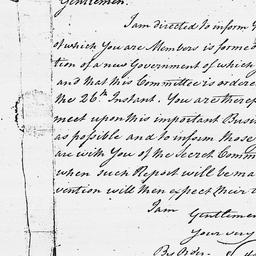 Gentlemen.
I am directed to inform
of which You are Members is formed
tion of a new Government of which
and that this Committee is ordered
the 26th Instant. You are theref
meet upon this important Busi
as possible and to inform those
are with You of the Secret Comm
when such Report will be ma
vention will then expect their
I am
Gentlemen
Your very
By Order.